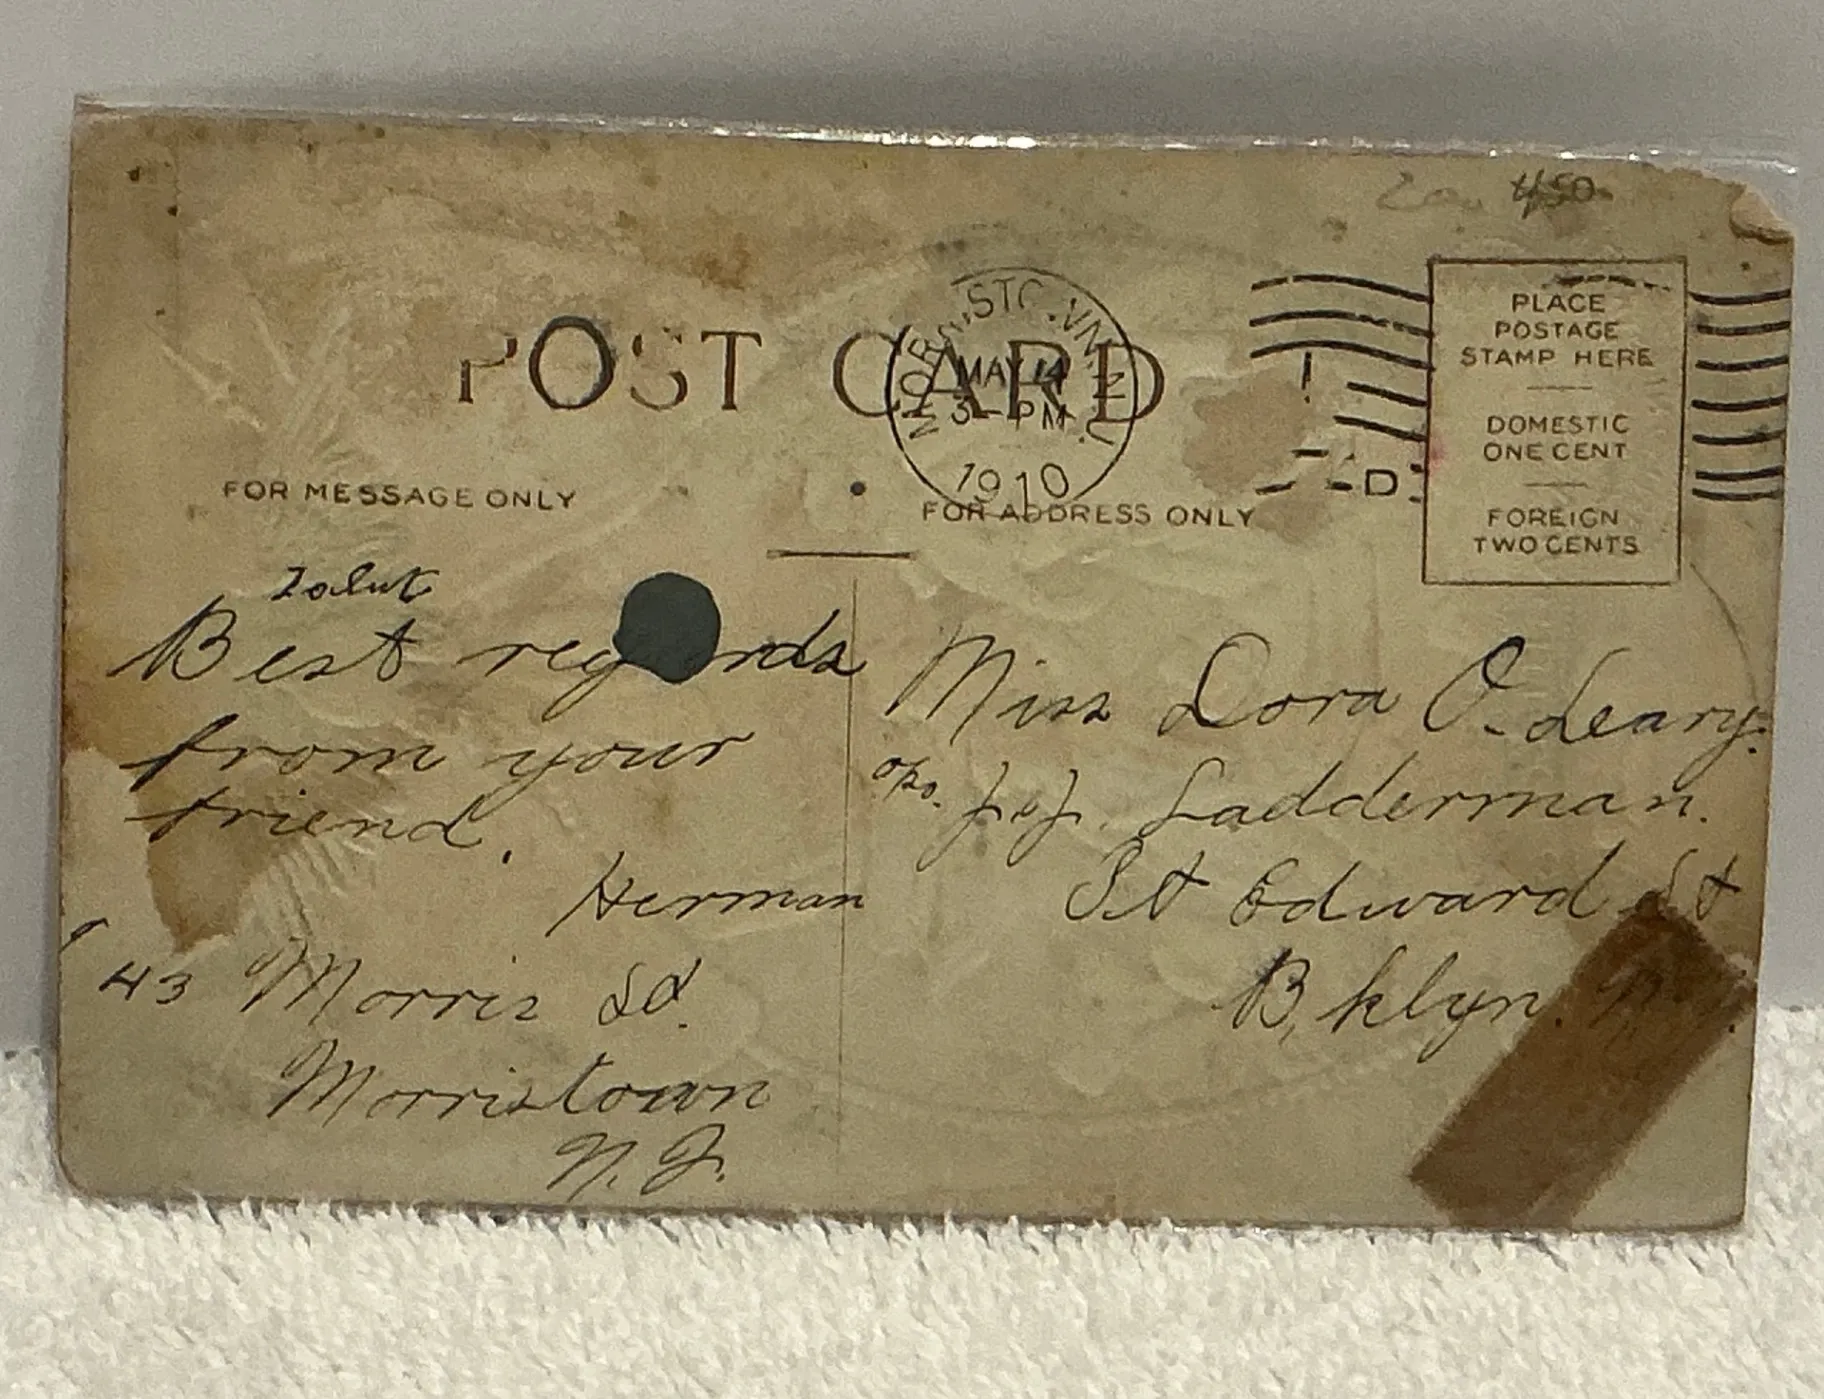 450
POST CARD
MORRISTOWN, N.J.
MAY 14
3-PM
1910
D
PLACE
POSTAGE
STAMP HERE
DOMESTIC
ONE CENT
FOREIGN
TWO CENTS
FOR MESSAGE ONLY
FOR ADDRESS ONLY
Best regards
from your
friend.
Herman
43 Morris St.
Morristown
N. J.
Miss Dora O-Leary.
J. Ladderman.
St Edward St
B,klyn. N.Y.